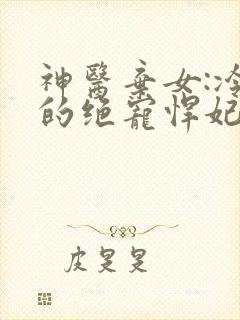 神醫棄女:冷
的绝寵悍妃
皮皂皂